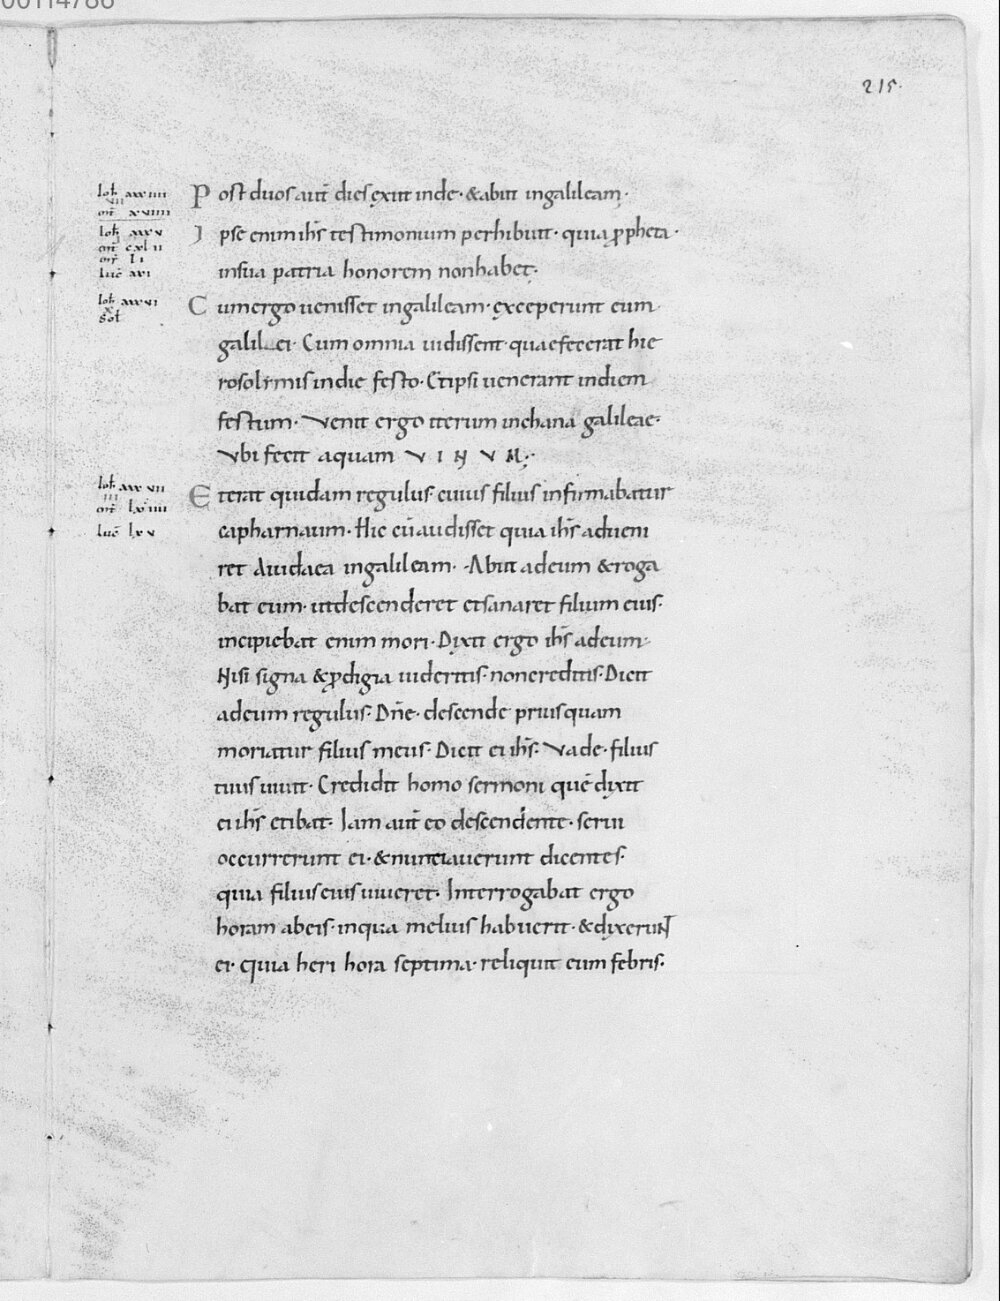 00114786
215.
Ioh xxxiiii
VII
mt xviiii
Ioh xxxv
mt cxlii
mr li
Luc xvi
Ioh xxxvi
x
sol
Ioh xxxvii
III
mt lxiiii
Luc lxv
Post duos aut̄ dies exiit inde· &abiit ingalileam·
Ipse enim ih̄s testimonium perhibuit· quia ꝓpheta·
insua patria honorem nonhabet·
Cumergo uenisset ingalileam· exceperunt eum
galilei· Cum omnia uidissent· quaefecerat hie
rosolimis indie festo· Etipsi uenerant indiem
festum· Venit ergo iterum inchana galileae·
Vbi fecit aquam VINUM·
Eterat quidam regulus· cuius filius infirmabatur
capharnaum· Hic cū audisset quia ih̄s adueni
ret Aiudaea ingalileam· Abiit adeum &roga
bat eum· utdescenderet etsanaret filium eius·
incipiebat enim mori· Dixit ergo ih̄s adeum·
Nisi signa &ꝓdigia uideritis· noncreditis· Dicit
adeum regulus· Dn̄e· descende priusquam
moriatur filius meus· Dicit ei ih̄s· Vade· filius
tuus uiuit· Credidit homo sermoni quē dixit
ei ih̄s etibat· Iam aut̄ eo descendente· serui
occurrerunt ei· &nunciauerunt dicentes·
quia filius eius uiueret· Interrogabat ergo
horam abeis· inqua melius habuerit· &dixeruNT
ei· Quia heri hora septima· reliquit eum febris·